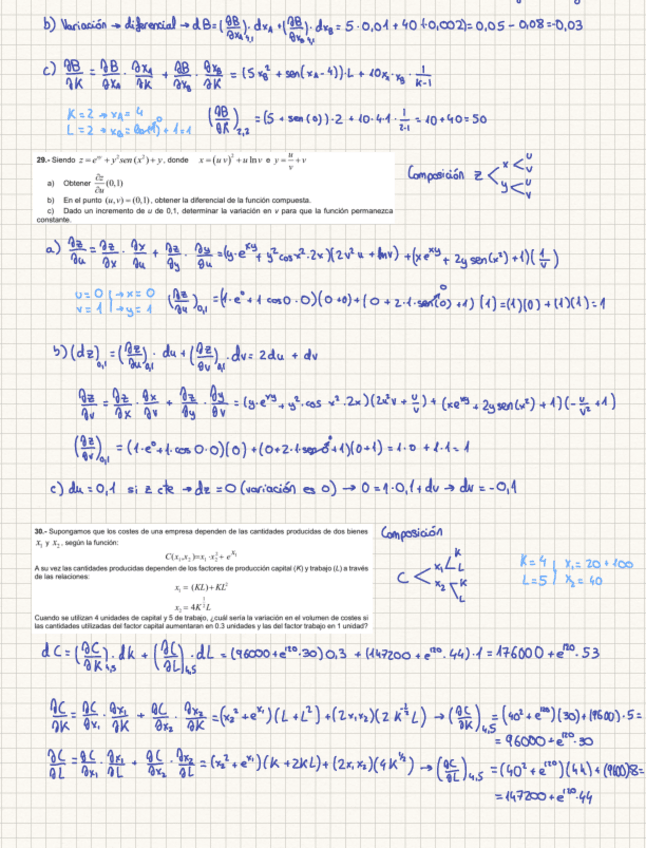 b) Variación → diferencial → dB = (∂B/∂x_A)₄,₁ · dx_A + (∂B/∂x_B)₄,₁ · dx_B = 5·0,01 + 40(-0,002) = 0,05 - 0,08 = -0,03
c) ∂B/∂K = ∂B/∂x_A · ∂x_A/∂K + ∂B/∂x_B · ∂x_B/∂K = (5x_B² + sen(x_A-4))·L + 10x_A·x_B · 1/(K-1)
K=2 → x_A = 4
L=2 → x_B = + 1 = 1
(∂B/∂K)₂,₂ = (5 + sen(0))·2 + 10·4·1 · 1/(2-1) = 10 + 40 = 50
29.- Siendo z = e^{xy} + y² sen(x²) + y, donde x = (uv)² + u ln v e y = u/v + v
a) Obtener ∂z/∂u (0,1)
b) En el punto (u,v) = (0,1), obtener la diferencial de la función compuesta.
c) Dado un incremento de u de 0,1, determinar la variación en v para que la función permanezca
constante.
Composición z < x < u v
y < u v
a) ∂z/∂u = ∂z/∂x · ∂x/∂u + ∂z/∂y · ∂y/∂u = (y·e^{xy} + y² cos x²·2x)(2v²u + lnv) + (xe^{xy} + 2y sen(x²) + 1)(1/v)
u=0 | → x=0
v=1 | → y=1
(∂z/∂u)₀,₁ = (1·e⁰ + 1 cos0·0)(0+0) + (0 + 2·1·sen(0) + 1)(1) = (1)(0) + (1)(1) = 1
b) (dz)₀,₁ = (∂z/∂u)₀,₁ · du + (∂z/∂v)₀,₁ · dv = 2du + dv
∂z/∂v = ∂z/∂x · ∂x/∂v + ∂z/∂y · ∂y/∂v = (y·e^{xy} + y²·cos x²·2x)(2u²v + u/v) + (xe^{xy} + 2y sen(x²) + 1)(-u/v² + 1)
(∂z/∂v)₀,₁ = (1·e⁰ + 1·cos 0·0)(0) + (0 + 2·1·sen 0 + 1)(0+1) = 1·0 + 1·1 = 1
c) du = 0,1 si z cte → dz = 0 (variación es 0) → 0 = 1·0,1 + dv → dv = -0,1
30.- Supongamos que los costes de una empresa dependen de las cantidades producidas de dos bienes
x₁ y x₂, según la función:
C(x₁,x₂) = x₁·x₂² + e^{x₁}
A su vez las cantidades producidas dependen de los factores de producción capital (K) y trabajo (L) a través
de las relaciones:
x₁ = (KL) + KL²
x₂ = 4K^{1/2}L
Cuando se utilizan 4 unidades de capital y 5 de trabajo, ¿cuál sería la variación en el volumen de costes si
las cantidades utilizadas del factor capital aumentaran en 0.3 unidades y las del factor trabajo en 1 unidad?
Composición
C < x₁ < K L
x₂ < K L
K=4 | x₁ = 20 + 100
L=5 | x₂ = 40
dC = (∂C/∂K)₄,₅ · dk + (∂C/∂L)₄,₅ · dL = (96000 + e^{120}·30)0,3 + (147200 + e^{120}·44)·1 = 176000 + e^{120}·53
∂C/∂K = ∂C/∂x₁ · ∂x₁/∂K + ∂C/∂x₂ · ∂x₂/∂K = (x₂² + e^{x₁})(L + L²) + (2x₁x₂)(2K^{-1/2}L) → (∂C/∂K)₄,₅ = (40² + e^{120})(30) + (9600)·5 =
= 96000 + e^{120}·30
∂C/∂L = ∂C/∂x₁ · ∂x₁/∂L + ∂C/∂x₂ · ∂x₂/∂L = (x₂² + e^{x₁})(K + 2KL) + (2x₁x₂)(4K^{1/2}) → (∂C/∂L)₄,₅ = (40² + e^{120})(44) + (9600)8 =
= 147200 + e^{120}·44